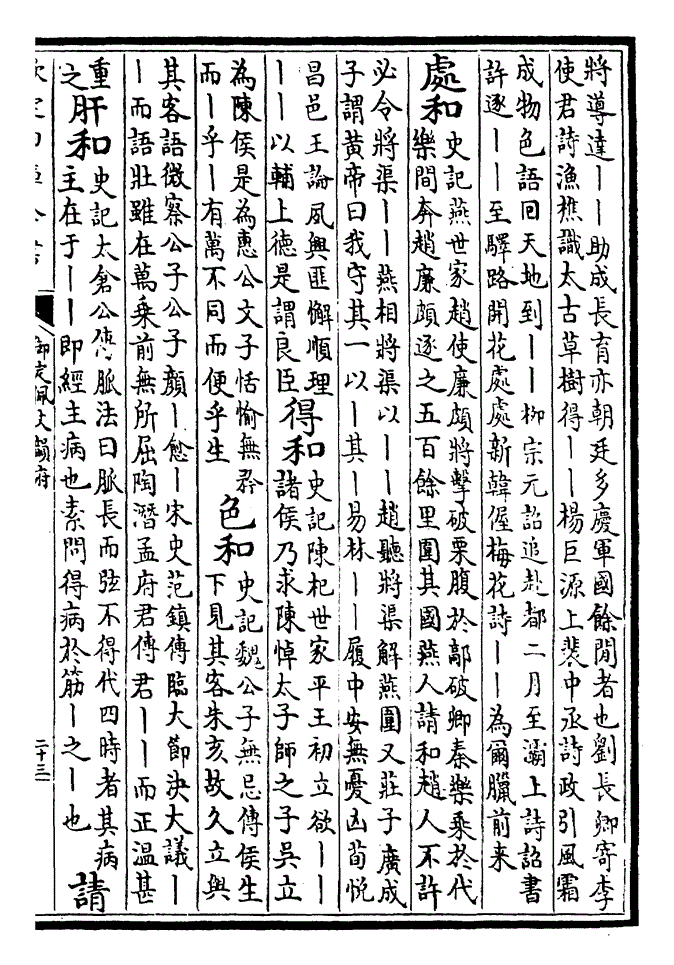 將導達｜｜助成長育亦朝廷多慶軍國餘閒者也劉長卿寄李
使君詩漁樵識太古草樹得｜｜楊巨源上裴中丞詩政引風霜
成物色語回天地到｜｜柳宗元詔追赴都二月至灞上詩詔書
許逐｜｜至驛路開花處處新韓偓梅花詩｜｜為爾臘前来
處和
史記燕世家趙使廉頗將擊破栗腹於鄗破卿秦樂乘於代
樂間奔趙廉頗逐之五百餘里圍其國燕人請和趙人不許
必令將渠｜｜燕相將渠以｜｜趙聽將渠解燕圍又莊子廣成
子謂黄帝曰我守其一以｜其｜易林｜｜履中安無憂凶荀悦
昌邑王論夙興匪懈順理
｜｜以輔上徳是謂良臣
得和
史記陳杞世家平王初立欲｜｜
諸侯乃求陳悼太子師之子吳立
為陳侯是為惠公文子恬愉無矜
而｜乎｜有萬不同而便乎生
色和
史記魏公子無忌傳侯生
下見其客朱亥故久立與
其客語微察公子公子顔｜愈｜宋史范鎮傳臨大節決大議｜
｜而語壯雖在萬乗前無所屈陶潛孟府君傳君｜｜而正温甚
重
之
肝和
史記太倉公傳脈法曰脈長而弦不得代四時者其病
主在于｜｜即經主病也素問得病於筋｜之｜也
請
御定佩文韻府
二十三